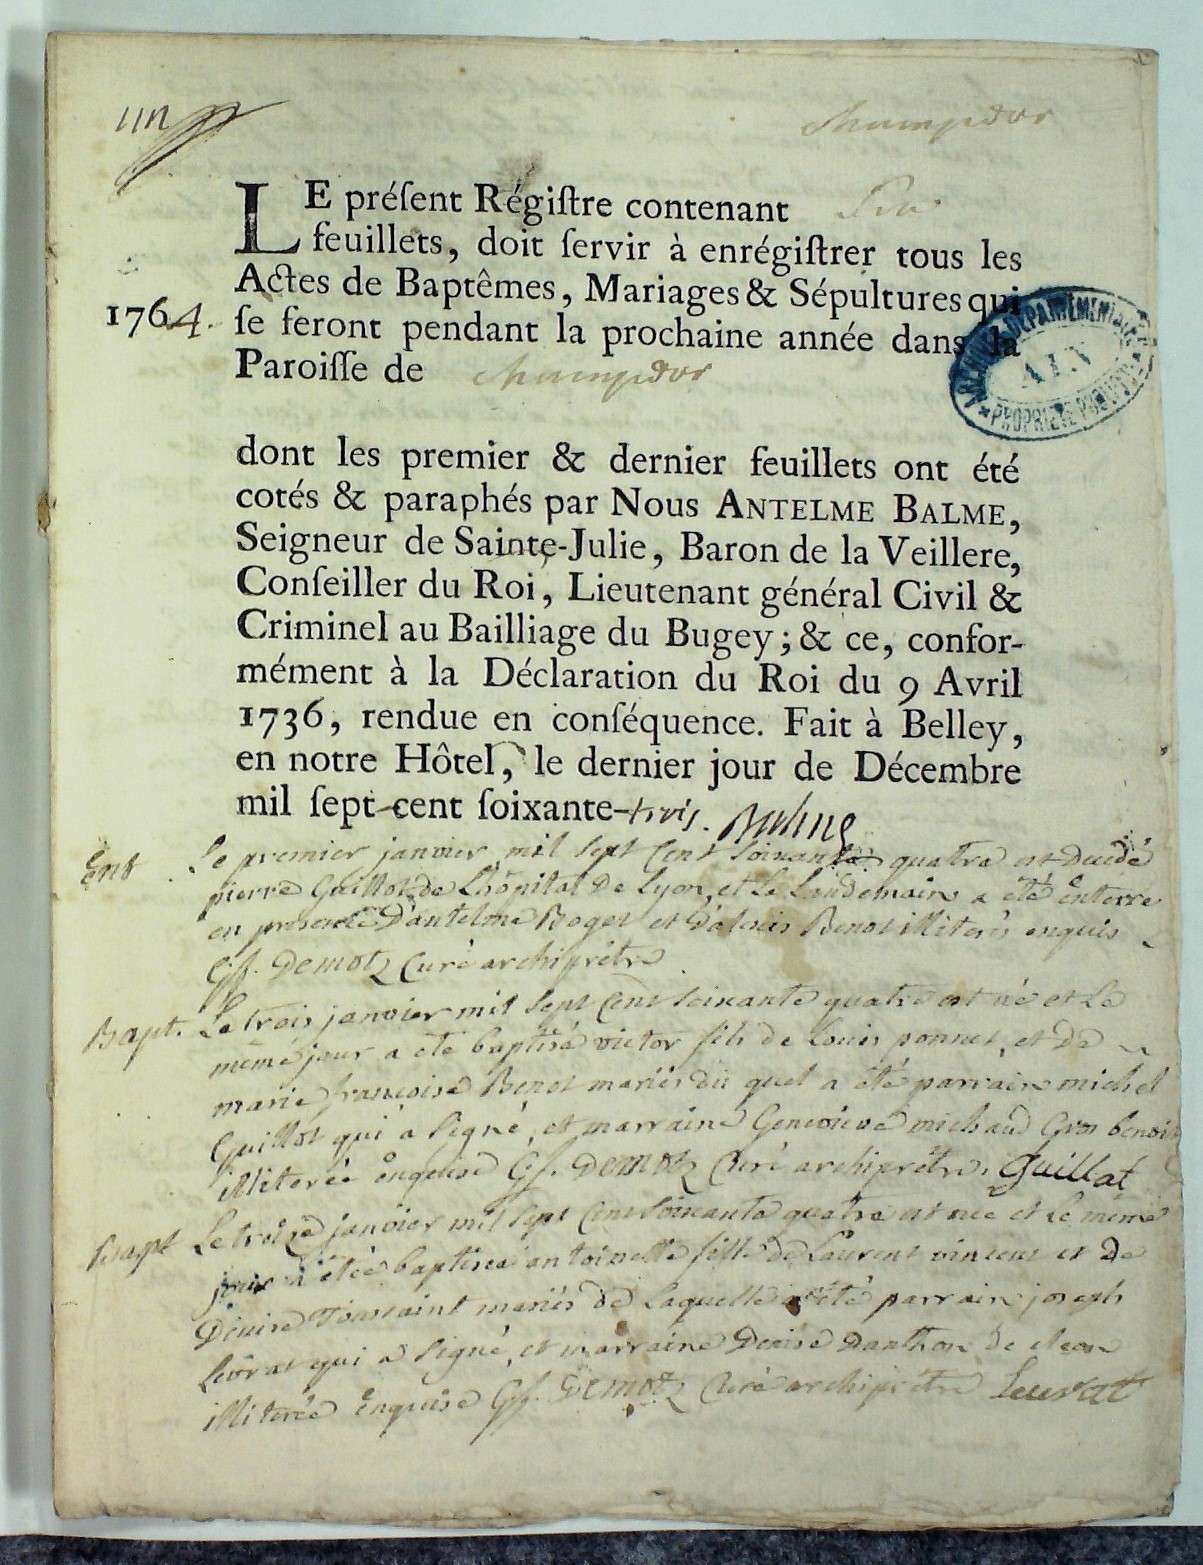 Champdor
LE préſent Régiſtre contenant Six
feuillets, doit ſervir à enrégiſtrer tous les
Actes de Baptêmes, Mariages & Sépultures qui
1764. ſe feront pendant la prochaine année dans la
Paroiſſe de Champdor
ARCHIVES DÉPARTEMENTALES
AIN
PROPRIÉTÉ PUBLIQUE
dont les premier & dernier feuillets ont été
cotés & paraphés par Nous ANTELME BALME,
Seigneur de Sainte-Julie, Baron de la Veillere,
Conſeiller du Roi, Lieutenant général Civil &
Criminel au Bailliage du Bugey; & ce, confor-
mément à la Déclaration du Roi du 9 Avril
1736, rendue en conſéquence. Fait à Belley,
en notre Hôtel, le dernier jour de Décembre
mil ſept-cent ſoixante-trois. Balme
Ent Le premier janvier mil sept cent soixante quatre est decedé
pierre Guillot de L'hôpital de Lyon, et Le Landemain a été enterré
en presence D'antelme Roget et Benoit illiterés enquis
Demotz Curé archiprêtre
Bapt. Le trois janvier mil sept cent soixante quatre est né et Le
même jour a été baptisé victor fils de Louis ponnet, et de
marie françoise Benoit mariés du quel a été parrain michel
Guillot qui a signé, et marraine Genevieve michaud Gros benoit
illiterée enquise Demotz Curé archiprêtre. Guillat
Bapt Le treize janvier mil sept cent soixante quatre est née et Le même
jour a étée baptisée antoinette fille de Laurent vincent et de
Denise Toussaint mariés de Laquelle a été parrain joseph
Levrat qui a signé, et marraine Denise Danthon
illiterée enquise Demotz Curé archiprêtre Leuvrat